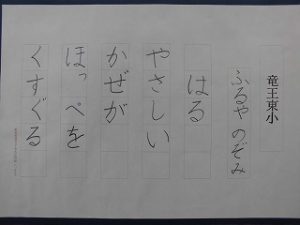 竜王東小
ふるや のぞみ
はる
やさしい
かぜが
ほっぺを
くすぐる